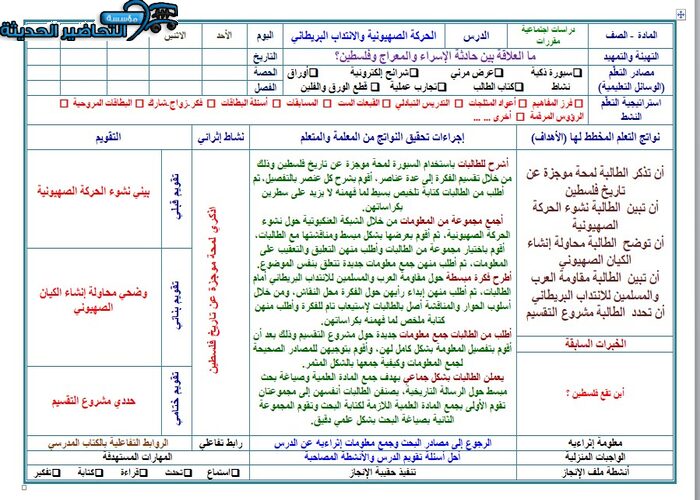 مؤسسة التحاضير الحديثة
المادة - الصف
دراسات اجتماعية
مقررات
الدرس
الحركة الصهيونية والانتداب البريطاني
اليوم
الأحد
الاثنين
التهيئة والتمهيد
ما العلاقة بين حادثة الإسراء والمعراج وفلسطين؟
التاريخ
مصادر التعلم
(الوسائل التعليمية)
سبورة ذكية
عرض مرئي
شرائح إلكترونية
أوراق
الحصة
نشاط
كتاب الطالب
تجارب عملية
قطع الورق والفلين
الفصل
استراتيجية التعلم
النشط
فرز المفاهيم
أعواد المثلجات
التدريس التبادلي
القبعات الست
المسابقات
أسئلة البطاقات
فكر.زواج.شارك
البطاقات المروحية
الرؤوس المرقمة
أخرى ... ...
نواتج التعلم المخطط لها (الأهداف)
إجراءات تحقيق النواتج من المعلمة والمتعلم
نشاط إثرائي
التقويم
أن تذكر الطالبة لمحة موجزة عن
تاريخ فلسطين
أن تبين الطالبة نشوء الحركة
الصهيونية
أن توضح الطالبة محاولة إنشاء
الكيان الصهيوني
أن تبين الطالبة مقاومة العرب
والمسلمين للانتداب البريطاني
أن تحدد الطالبة مشروع التقسيم
الخبرات السابقة
أين تقع فلسطين ؟
أشرح للطالبات باستخدام السبورة لمحة موجزة عن تاريخ فلسطين وذلك
من خلال تقسيم الفكرة إلى عدة عناصر، أقوم بشرح كل عناصر بالتفصيل، ثم
أطلب من الطالبات كتابة تلخيص بسيط لما فهمنه لا يزيد على سطرين
بكراساتهن.
أجمع مجموعة من المعلومات من خلال الشبكة العنكبوتية حول نشوء
الحركة الصهيونية، ثم أقوم بعرضها بشكل مبسط ومناقشتها مع الطالبات.
أقوم باختيار مجموعة من الطالبات وأطلب منهن التعليق والتعقيب على
المعلومات، ثم أطلب منهن جمع معلومات جديدة تتعلق بنفس الموضوع.
أطرح فكرة مبسطة حول مقاومة العرب والمسلمين للانتداب البريطاني أمام
الطالبات، ثم أطلب منهن إبداء رأيهن حول الفكرة محل النقاش، ومن خلال
أسلوب الحوار والمناقشة أصل بالطالبات لإستيعاب تام للفكرة وأطلب منهن
كتابة ملخص لما فهمنه بكراساتهن.
أطلب من الطالبات جمع معلومات جديدة حول مشروع التقسيم وذلك بعد أن
أقوم بتفصيل المعلومة بشكل كامل لهن، وأقوم بتوجيهن للمصادر الصحيحة
لجمع المعلومات وكيفية جمعها بالشكل المثمر.
يعملن الطالبات بشكل جماعي بهدف جمع المادة العلمية وصياغة بحث
مبسط حول الرسالة التاريخية، يصنفن الطالبات أنفسهن إلى مجموعتان
تقوم الأولى بجمع المادة العلمية اللازمة لكتابة البحث والمجموعة
الثانية بصياغة البحث بشكل علمي دقيق.
اذكري لمحة موجزة عن تاريخ فلسطين
تقويم قبلي
بيني نشوء الحركة الصهيونية
تقويم بنائي
وضحي محاولة إنشاء الكيان
الصهيوني
تقويم ختامي
حددي مشروع التقسيم
معلومة إثرائية
الرجوع إلى مصادر البحث وجمع معلومات إثرائية عن الدرس
رابط تفاعلي
الروابط التفاعلية بالكتاب المدرسي
الواجبات المنزلية
أحل أسئلة تقويم الدرس والأنشطة المصاحبة
المهارات المستهدفة
أنشطة ملف الإنجاز
تنفيذ حقيبة الإنجاز
استماع
تحدث
قراءة
كتابة
تفكير